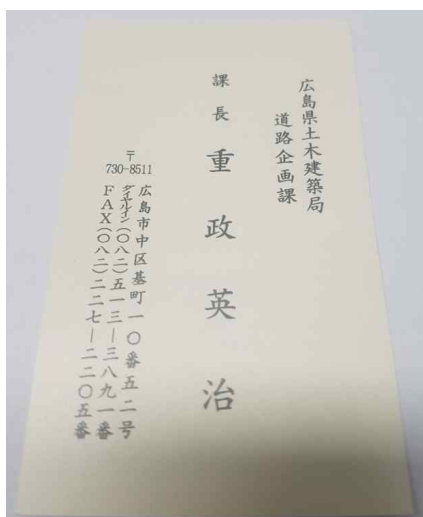 広島県土木建築局
道路企画課
課長 重政英治
〒
730-8511
広島市中区基町一〇番五二号
ダイヤルイン(〇八二)五一三―三八九一番
FAX(〇八二)二二七―二二〇五番